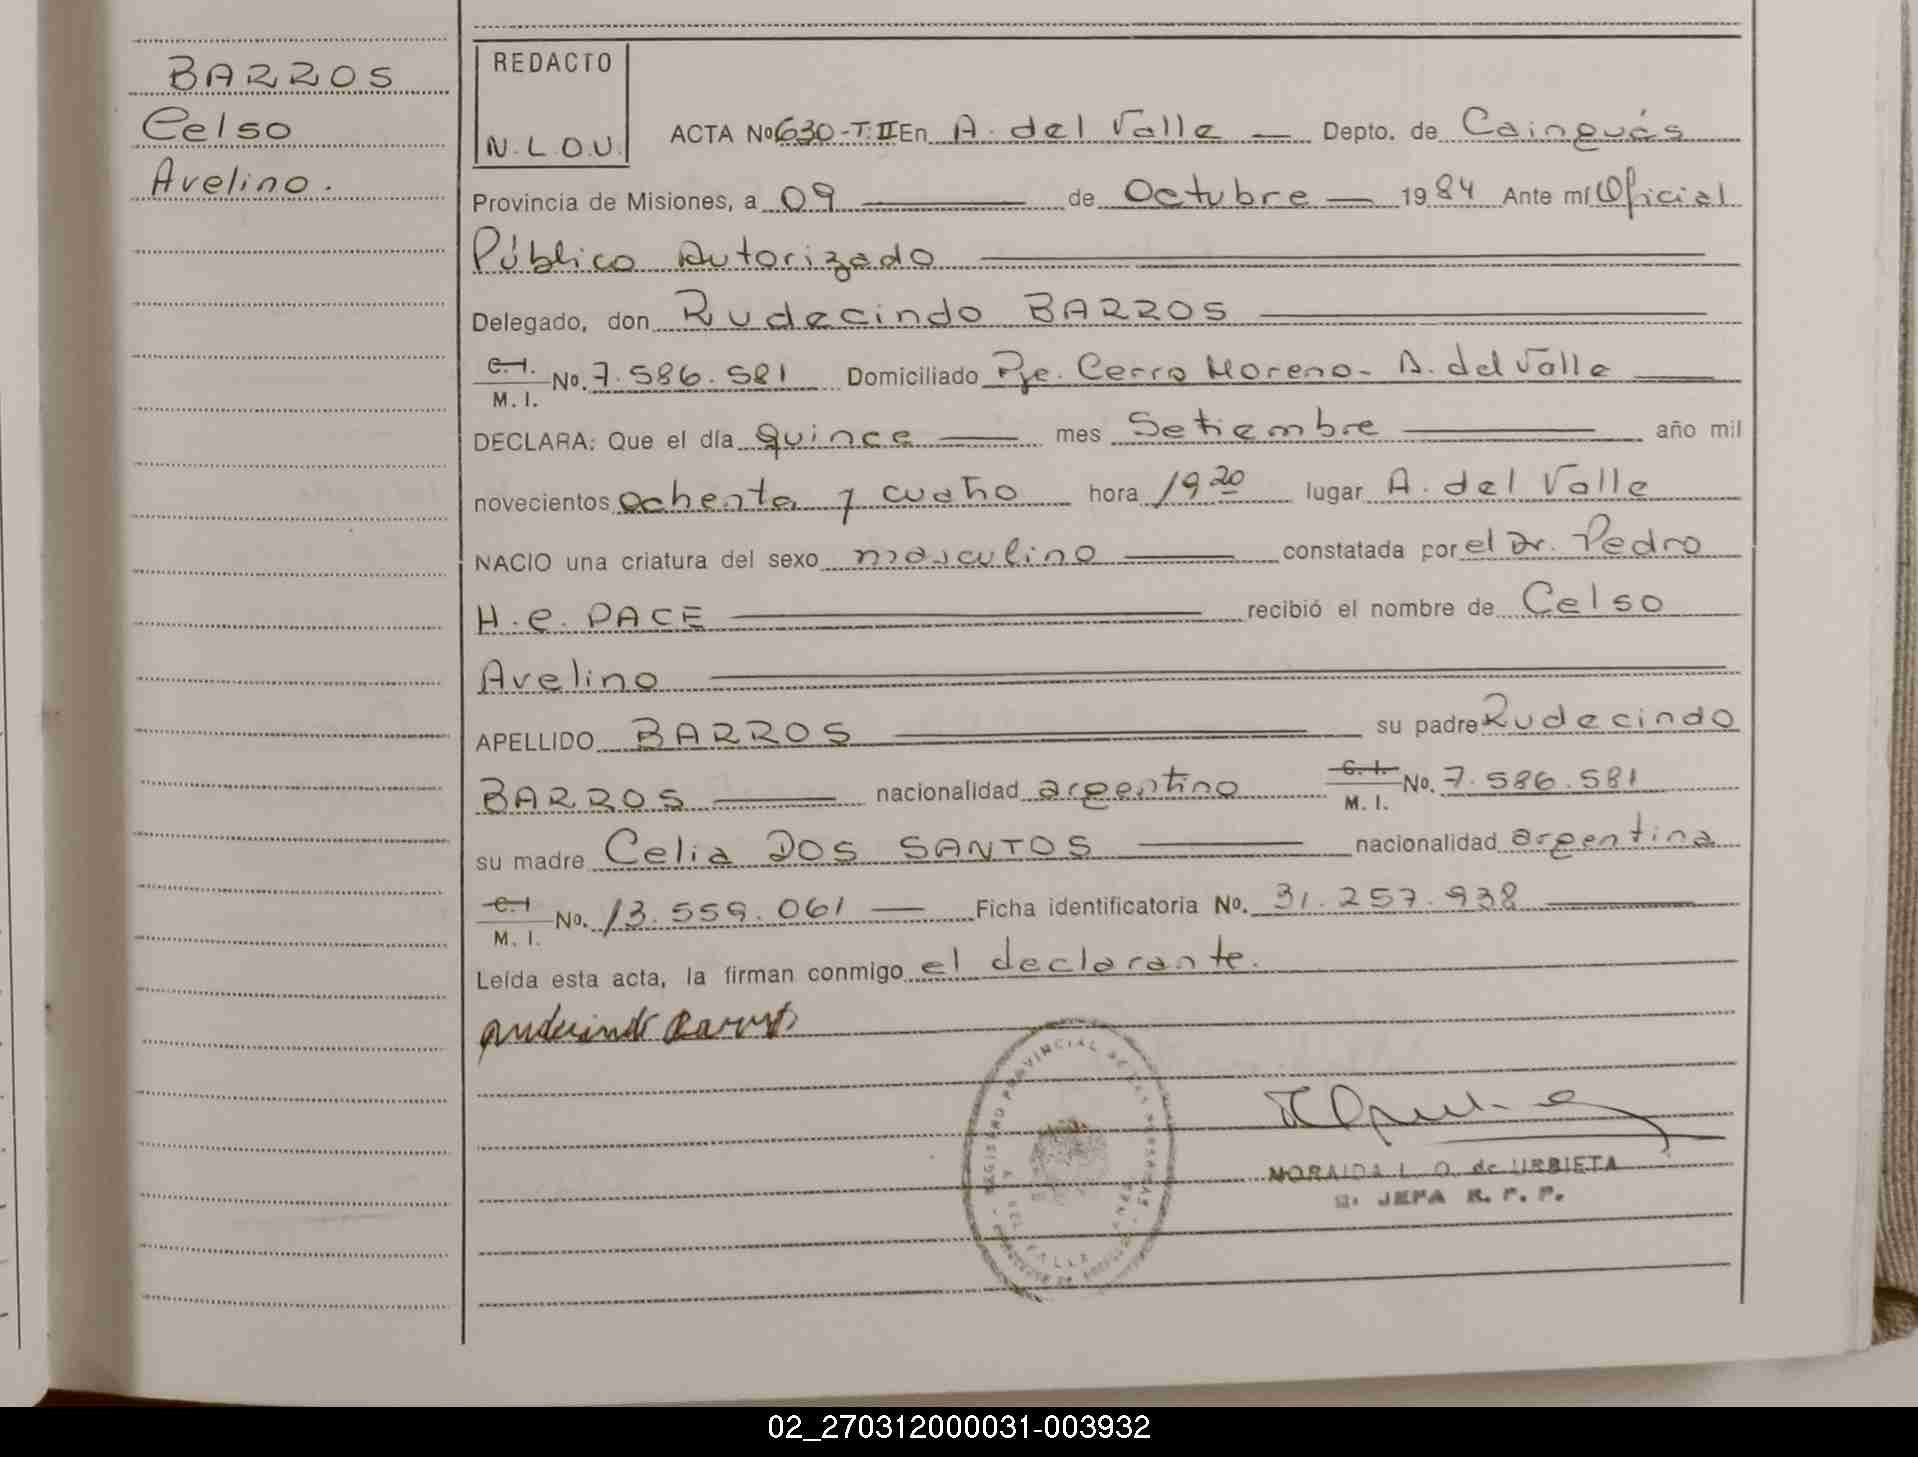 BARROS
Celso
Avelino.
REDACTO
N.L.O.U.
ACTA Nº 630-T:II En A. del Valle — Depto. de Cainguás
Provincia de Misiones, a 09 — de Octubre — 1984 Ante mí Oficial
Público Autorizado
Delegado, don Rudecindo BARROS
C.I. M.I. No. 7.586.581 Domiciliado Pje. Cerro Moreno - A. del Valle
DECLARA: Que el día quince — mes Setiembre — año mil
novecientos ochenta y cuatro hora 19 20 lugar A. del Valle
NACIO una criatura del sexo masculino — constatada por el Dr. Pedro
H.C. PACE — recibió el nombre de Celso
Avelino
APELLIDO BARROS — su padre Rudecindo
BARROS — nacionalidad argentino C.I. M.I. No. 7.586.581
su madre Celia DOS SANTOS — nacionalidad argentina
C.I. M.I. No. 13.559.061 — Ficha identificatoria Nº. 31.257.938
Leída esta acta, la firman conmigo el declarante.
Rudecindo Barros
REGISTRO PROVINCIAL DE LAS PERSONAS
DEL VALLE
NORAIDA L. O. de URBIETA
JEFA R. P. P.
02_270312000031-003932